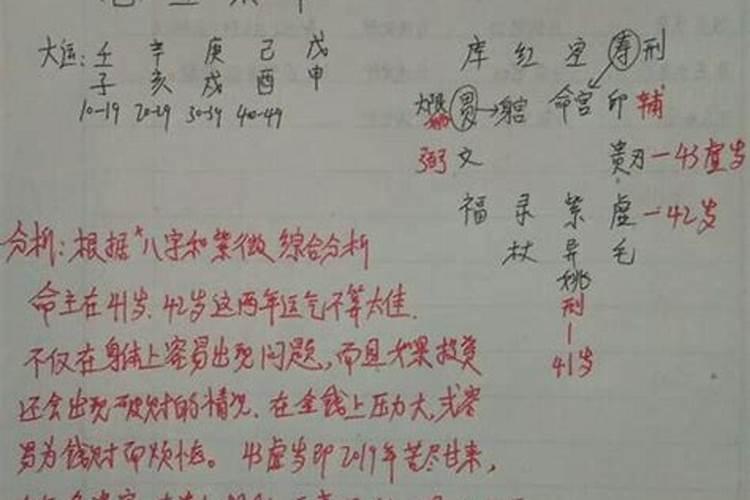 大运: 壬 辛 庚 己 戊
子 亥 戌 酉 申
10-19 20-29 30-39 40-49
库 红 空 寿 刑
大限 贯→ 身宫 命宫 印 辅
弼 文 贵刃—43虚岁
福 录 紫 虚—42岁
杖 异 毛
姚
刑
41岁
分析:根据"八字和紫微综合分析
命主在41岁、42岁这两年运气不算太佳.
不仅在身体上容易出现问题,而且如果投资
还会出现破财的情况、在金钱上压力大,或容
易为钱财而烦恼。43虚岁即2019年苦尽甘来,